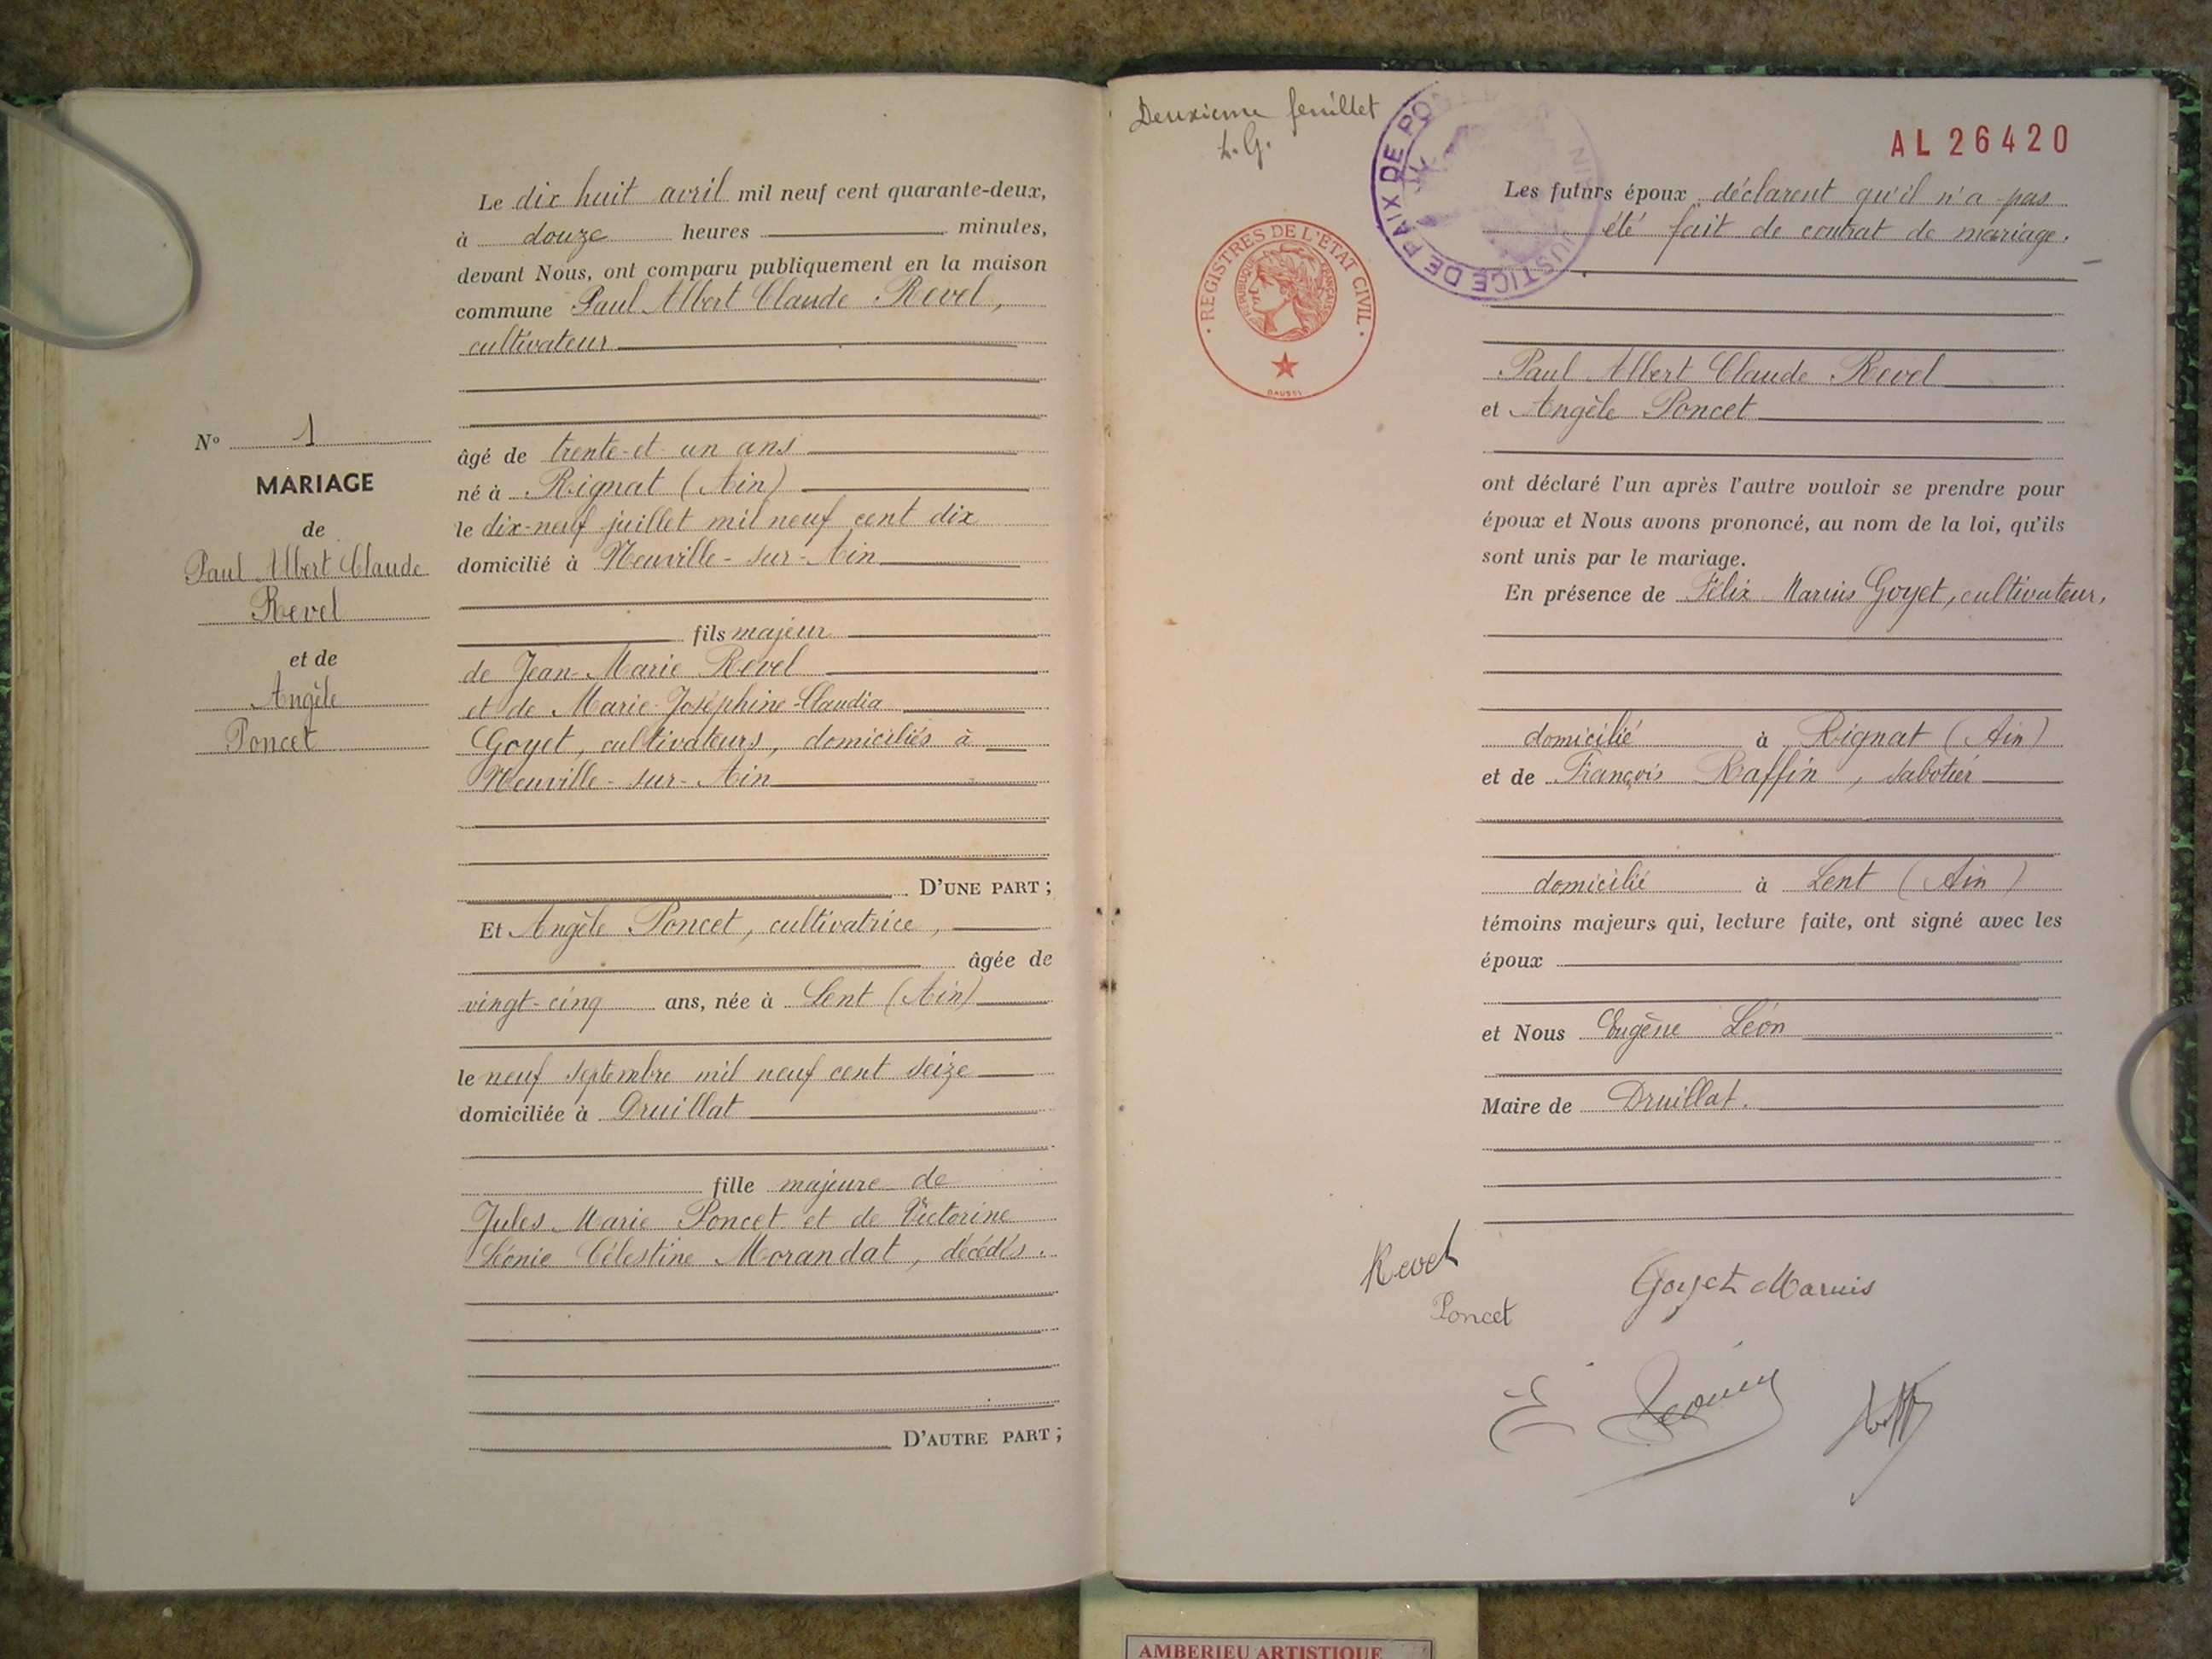 Le dix huit avril mil neuf cent quarante-deux,
à douze heures minutes,
devant Nous, ont comparu publiquement en la maison
commune Paul Albert Claude Revel,
cultivateur
âgé de trente-et un ans
né à Rignat (Ain)
le dix-neuf juillet mil neuf cent dix
domicilié à Neuville-sur-Ain
fils majeur
de Jean-Marie Revel
et de Marie-Joséphine-Claudia
Goyet, cultivateurs, domiciliés à
Neuville-sur-Ain
D'UNE PART ;
Et Angèle Poncet, cultivatrice,
âgée de
vingt-cinq ans, née à Lent (Ain)
le neuf septembre mil neuf cent seize
domiciliée à Druillat
fille majeure de
Jules Marie Poncet et de Victorine
Léonie Célestine Morandat, décédés.
D'AUTRE PART ;
N° 1
MARIAGE
de
Paul Albert Claude
Revel
et de
Angèle
Poncet
Deuxième feuillet
L.G.
JUSTICE DE PAIX DE PO
REGISTRES DE L'ETAT CIVIL
REPUBLIQUE FRANÇAISE
DAUSSI
AL 26420
Les futurs époux déclarent qu'il n'a pas
été fait de contrat de mariage.
Paul Albert Claude Revel
et Angèle Poncet
ont déclaré l'un après l'autre vouloir se prendre pour
époux et Nous avons prononcé, au nom de la loi, qu'ils
sont unis par le mariage.
En présence de Félix Marius Goyet, cultivateur,
domicilié à Rignat (Ain)
et de François Raffin, sabotier
domicilié à Lent (Ain)
témoins majeurs qui, lecture faite, ont signé avec les
époux
et Nous Eugène Léon
Maire de Druillat.
Revel
Poncet
Goyet Marius
AMBERIEU ARTISTIQUE